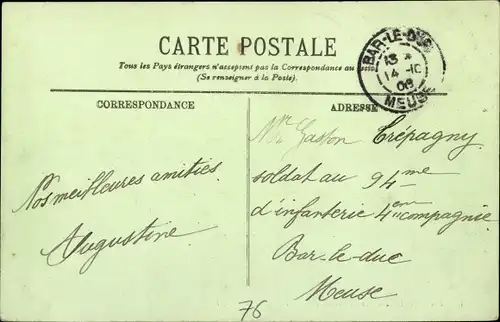 CARTE POSTALE
Tous les Pays étrangers n'acceptent pas la Correspondance au
(Se renseigner à la Poste).
BAR-LE-DUC
13 *
14 -10
08
MEUSE
CORRESPONDANCE
ADRESSE
Nos meilleures amitiés
Augustine
Mr Gaston Crépagny
soldat au 94me
d'infanterie 4eme compagnie
Bar-le-duc
Meuse
76